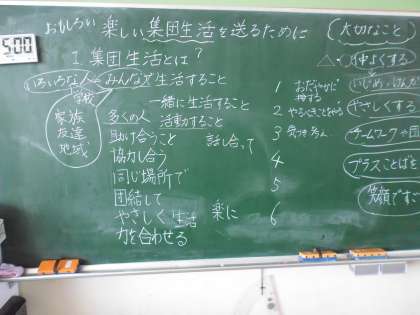 5:00
おもしろい 楽しい集団生活を送るために
大切なこと
1. 集団生活とは？
いろいろな人 みんなで生活すること
学校
家族
友達
地域
一緒に生活すること
多くの人 活動すること
助け合うこと 話し合って
協力し合う
同じ場所で
団結して
やさしく生活 楽に
力を合わせる
1 おだやかに
2 やるべきことをやる
3
4
5
6
仲よくする
やさしくする
チームワーク
プラスことばを
笑顔ですご